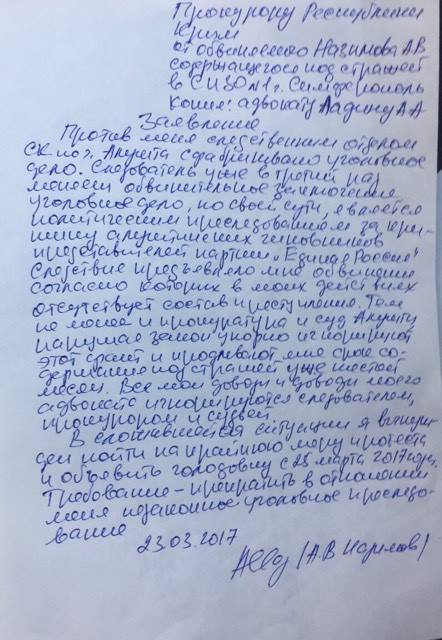 Прокурору Республики
Крым
от обвиняемого Назимова А.В
содержащегося под стражей
в СИЗО №1 г. Симферополь
Копия: адвокату Ладину А.А
Заявление
Против меня следственным отделом
СК по г. Алушта сфабриковано уголовное
дело. Следователь уже в третий раз
обвинительное заключение
уголовное дело, по своей сути, является
политическим преследованием за кри-
тику алуштинских чиновников
представителей партии "Единая Россия"
Следствие предъявило мне обвинение
согласно которых в моих действиях
отсутствует состав преступления. Тем
не менее и прокуратура и суд Алушты
нарушая закон упорно игнорируют
этот факт и продлевают мне срок со-
держания под стражей уже шестой
месяц. Все мои доводы и доводы моего
адвоката игнорируются следователем,
прокурором и судьей.
В сложившейся ситуации я вынуж-
ден пойти на крайнюю меру протеста
и объявить голодовку с 25 марта 2017 года.
Требование - прекратить в отношении
меня незаконное уголовное преследо-
вание
23.03.2017
(А.В Назимов)